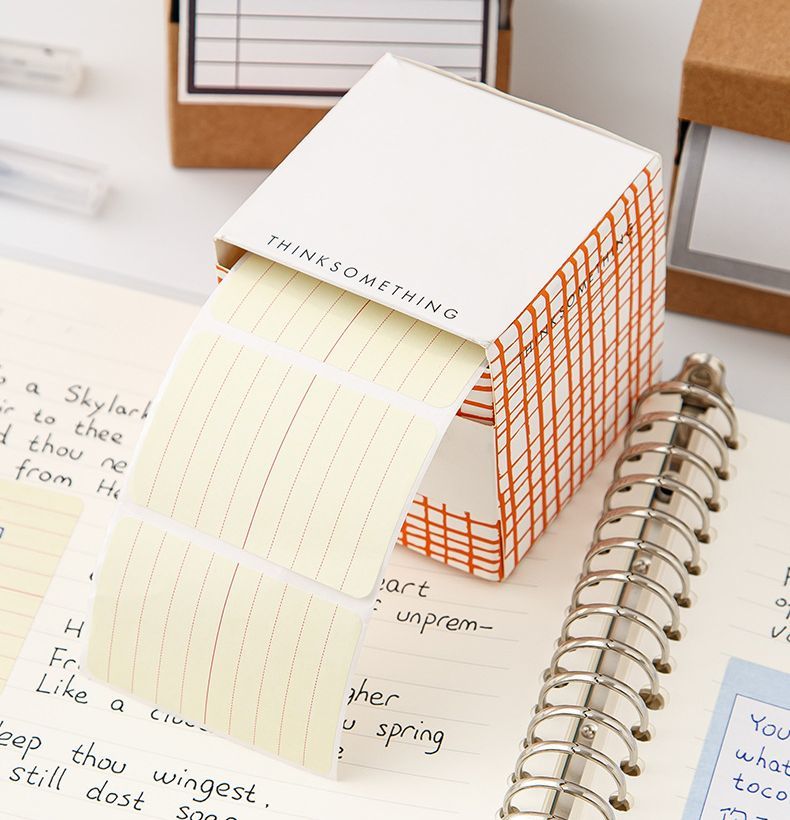 THINKSOMETHING
THINKSOMETHING
a Skylark
to thee
thou ne
from He
eart
unprem-
H
gher
Like a clou
spring
eep thou wingest,
still dost
You
what
toco